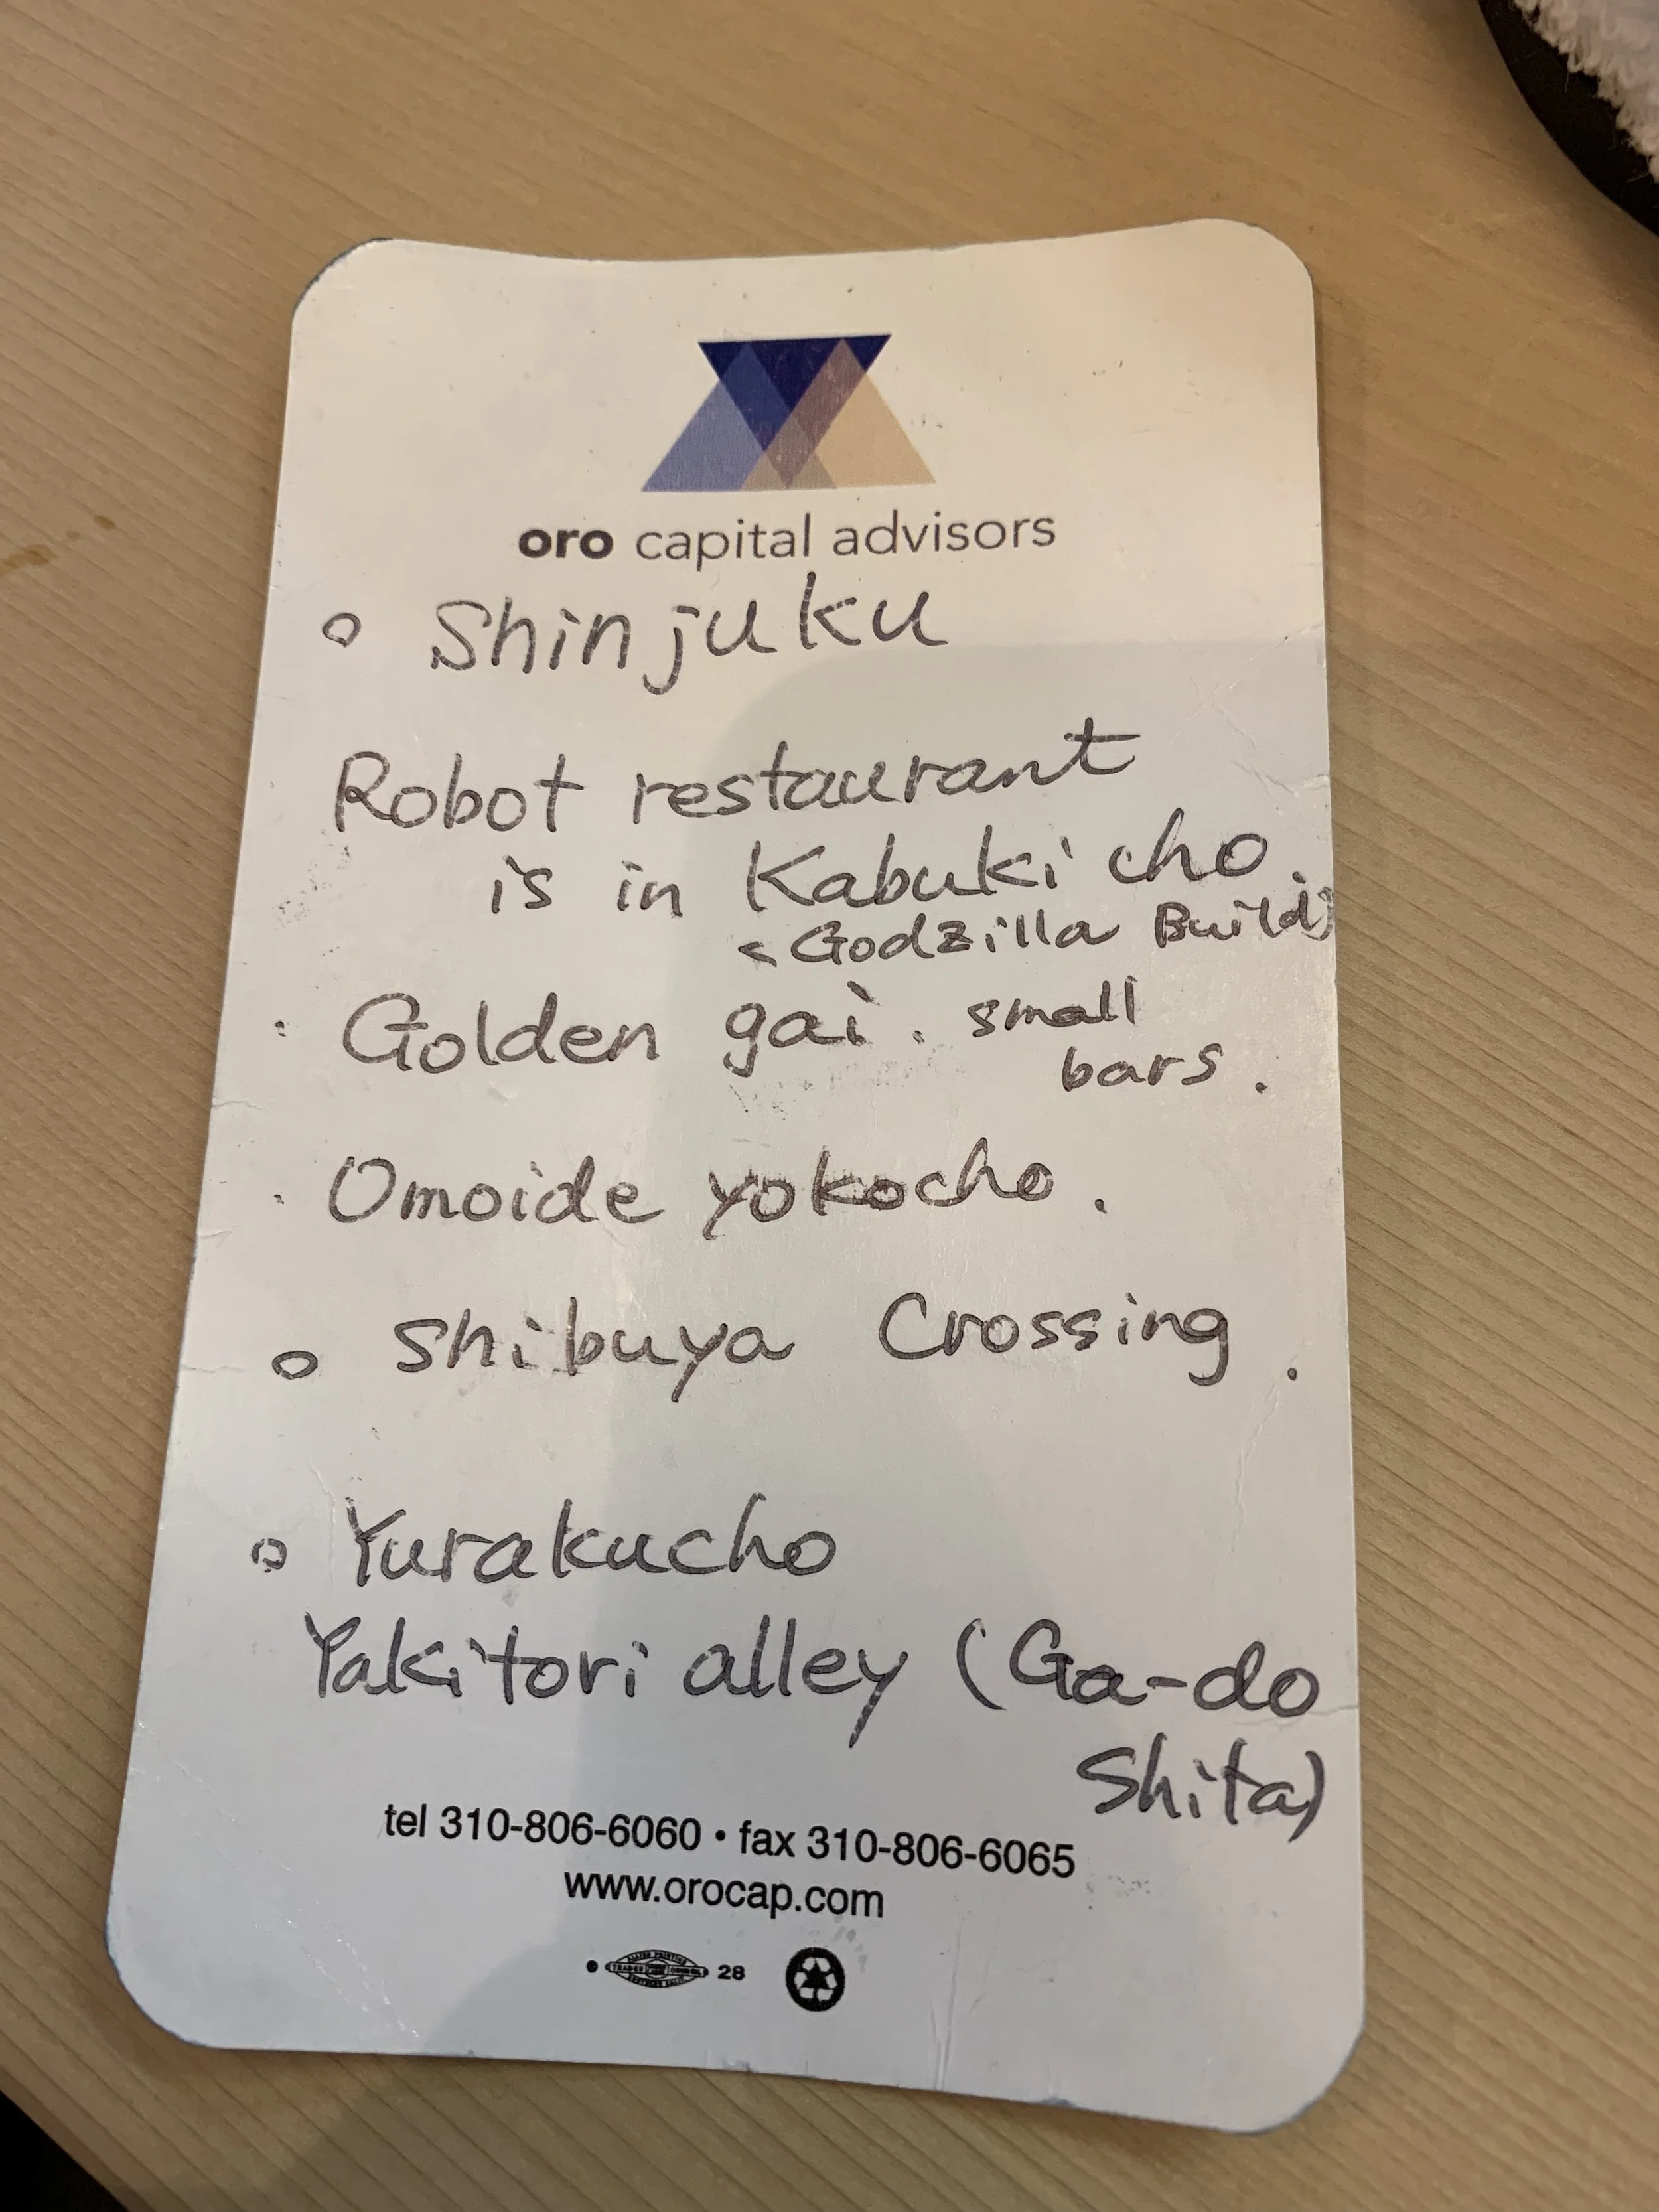 oro capital advisors
○ Shinjuku
Robot restaurant
is in Kabuki cho.
<Godzilla Build>
· Golden gai. small
bars.
· Omoide yokocho.
○ Shibuya Crossing.
○ Yurakucho
Yakitori alley (Ga-do
Shita)
tel 310-806-6060 • fax 310-806-6065
www.orocap.com
28